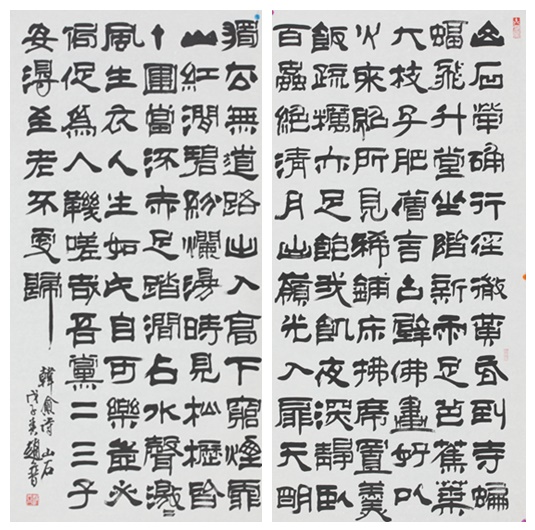 山石犖确行徑微黃昏到寺蝙
蝠飛升堂坐階新雨足芭蕉葉
大枝子肥僧言古壁佛畫好以
火來照所見稀鋪床拂席置羹
飯疏糲亦足飽我飢夜深靜臥
百蟲絕清月出嶺光入扉天明
獨去無道路出入高下窮煙霏
山紅澗碧紛爛漫時見松櫪皆
十圍當流赤足踏澗石水聲激々
風生衣人生如此自可樂豈必
侷促為人鞿嗟哉吾黨二三子
安得至老不更歸
韓愈詩 山石
戊子